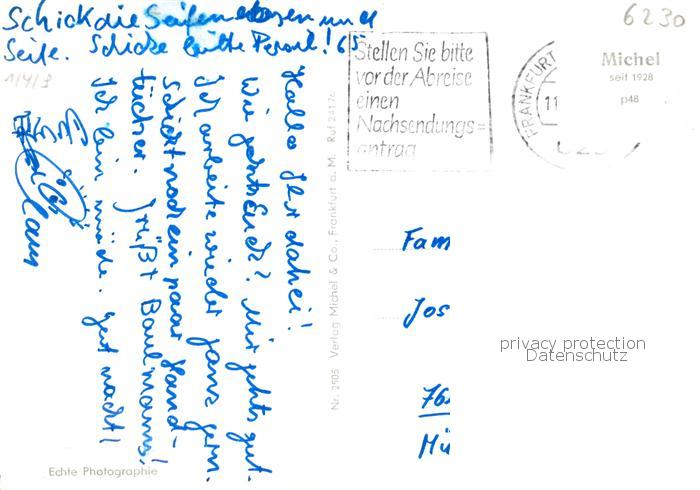 Schick die Seifendosen und
Seife. Schicke bitte Persil! 65
6230
11/4/3
Hallo Ihr daheim!
Wie geht's Euch? Mir geht's gut.
Ich arbeite wieder ganz gern.
Schickt noch ein paar Hand-
tücher. Grüßt Baulmanns!
Ich bin müde. gut nacht!
Nr. 2505 Verlag Michel & Co., Frankfurt a. M. Ruf
Echte Photographie
Stellen Sie bitte
vor der Abreise
einen
Nachsendungs=
antrag
FRANKFURT
11
Michel
seit 1928
p48
Fam
Jos
76
Mü
privacy protection
Datenschutz